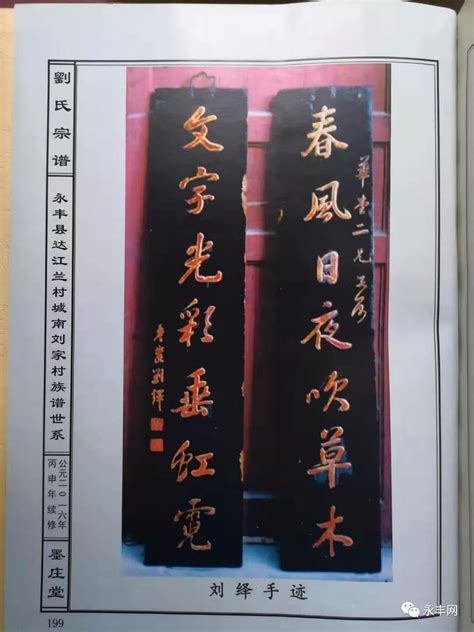 劉氏宗谱
永丰县达江兰村城南刘家村族谱世系
公元二〇一六年
丙申年续修
墨庄堂
199
春風日夜吹草木
華堂二兄
文字光彩垂虹霓
劉繹
刘绎手迹
永丰网